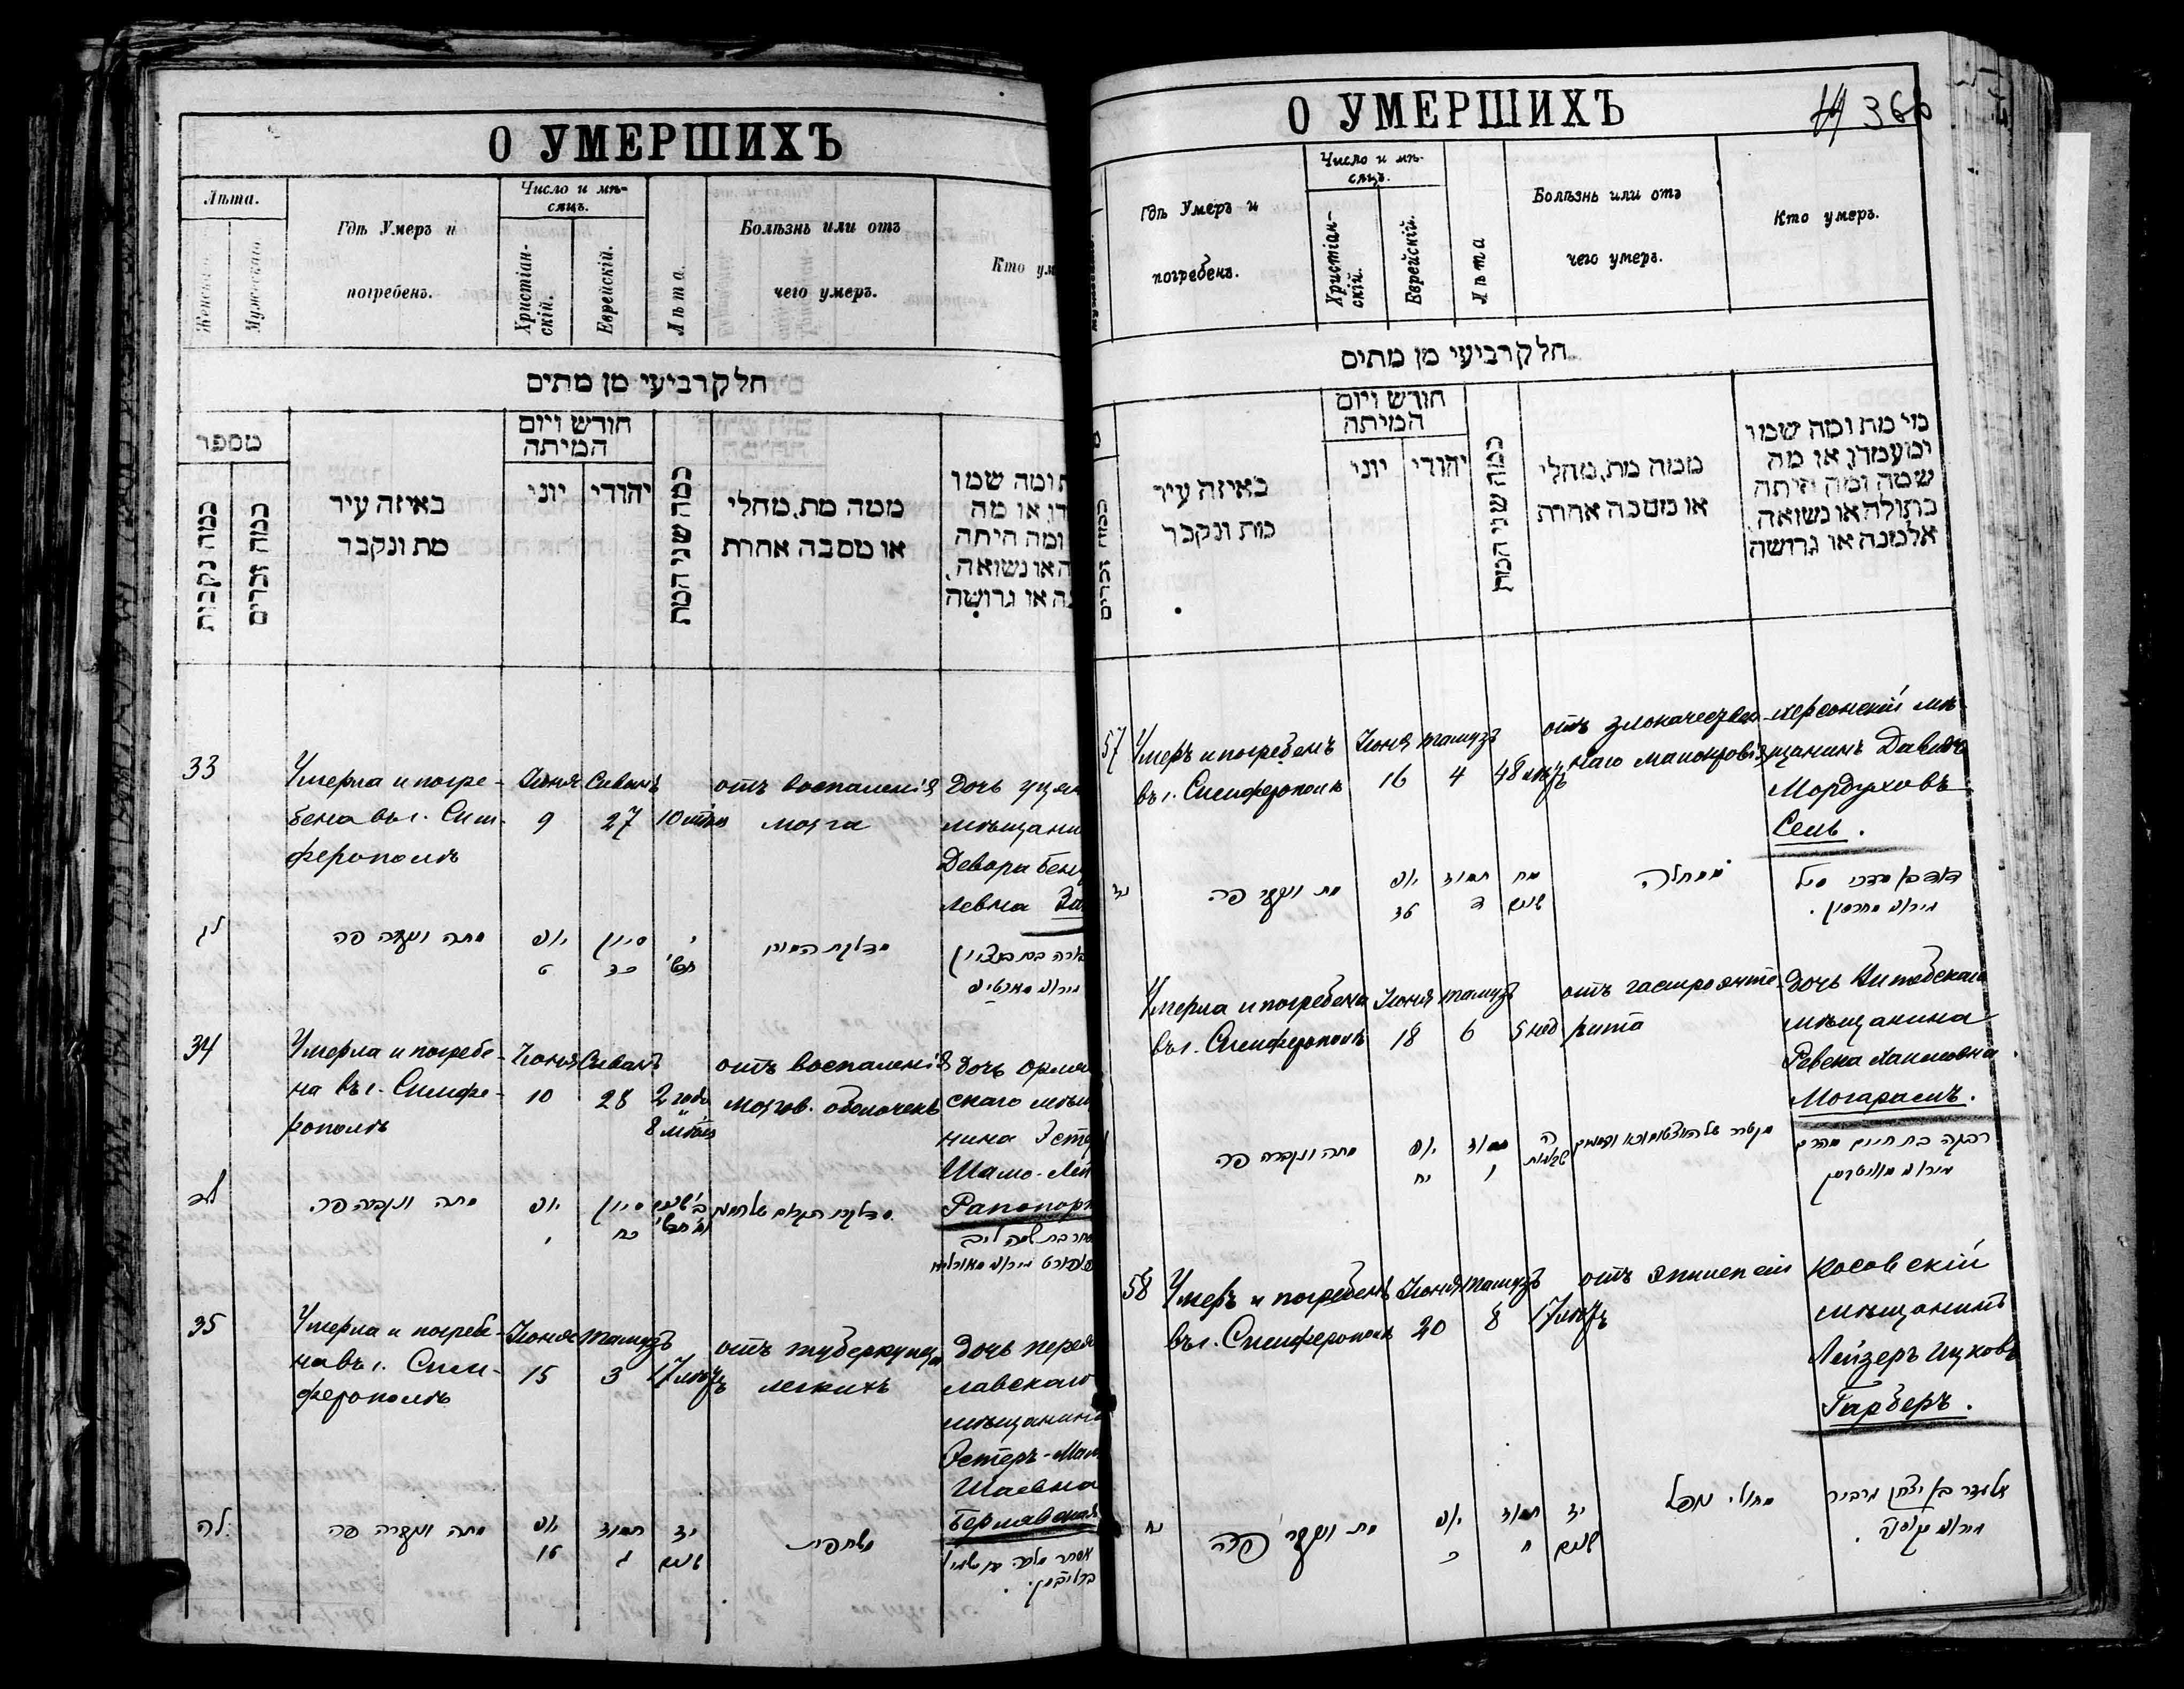 О УМЕРШИХЪ
Лѣта.
Женскаго.
Мужескаго.
Гдѣ Умеръ и
погребенъ.
Число и мѣ-
сяцъ.
Христіан-
скій.
Еврейскій.
Лѣта.
Болѣзнь или отъ
чего умеръ.
Кто ум
חלק רביעי מן מתים
מספר
כמה נקבות
כמה זכרים
באיזה עיר
מת ונקבר
חורש ויום
המיתה
יוני
יהודי
כמה שני המת
ממה מת, מחלי
או מסבה אחרת
ומה שמו
או מה
ומה היתה
או נשואה,
או גרושה
33
Умерла и погре-
бена въ г. Сим-
ферополѣ
Іюня
9
Сиванъ
27
10 мѣс
отъ воспаленія
мозга
Дочь
мѣщани
Девора Бен
левна За
לג
מתה ונקברה פה
יוני
ט
סיון
כז
י
חדשי
34
Умерла и погребе-
на въ г. Симфе-
рополѣ
Іюня
10
Сиванъ
28
2 года
8 мѣс
отъ воспаленія
мозгов. оболочекъ
Дочь орло
скаго мѣщ
нина Эсте
Шамо-Лей
Рапопорт
לד
מתה ונקברה פה
יוני
י
סיון
כח
35
Умерла и погребе-
на въ г. Сим-
ферополѣ
Іюня
15
Тамузъ
3
17 лѣтъ
отъ туберкулеза
легкихъ
Дочь перея
лавскаго
мѣщанина
Эстеръ-Мал
Шаевна
Бернавская
לה
מתה ונקברה פה
יוני
16
תמוז
ג
יז
שנים
משחפת
О УМЕРШИХЪ
14 366
Гдѣ Умеръ и
погребенъ.
Число и мѣ-
сяцъ.
Христіан-
скій.
Еврейскій.
Лѣта
Болѣзнь или отъ
чего умеръ.
Кто умеръ.
חלק רביעי מן מתים
כמה זכרים
באיזה עיר
מת ונקבר
חורש ויום
המיתה
יוני
יהודי
כמה שני המת
ממה מת, מחלי
או מסבה אחרת
מי מת ומה שמו
ומעמדו, או מה
שמה ומה היתה
בתולה או נשואה,
אלמנה או גרושה
57
Умеръ и погребенъ
въ г. Симферополѣ
Іюня
16
Тамузъ
4
48 лѣтъ
отъ злокачествен-
наго малокровія
Херсонскій мѣ-
щанинъ Давидъ
Мордуховъ
Сель.
נז
מת ונקבר פה
יוני
טז
תמוז
ד
מח
שנים
ממחלה
דוד בן מרדכי סיל
מחרסון.
Умерла и погребена
въ г. Симферополѣ
Іюня
18
Тамузъ
6
5 нед
отъ гастроэнте-
рита
Дочь Витебскаго
мѣщанина
Ревека Хаимовна
Могарамъ.
מתה ונקברה פה
יוני
יח
תמוז
ו
ה
רבקה בת חיים מהרם
58
Умеръ и погребенъ
въ г. Симферополѣ
Іюня
20
Тамузъ
8
17 лѣтъ
отъ эпилепсіи
Косовскій
мѣщанинъ
Лейзеръ Ицковъ
Гарберъ.
נח
מת ונקבר פה
יוני
כ
תמוז
ח
יז
שנים
מחולי נופל
אליעזר בן יצחק גרביר